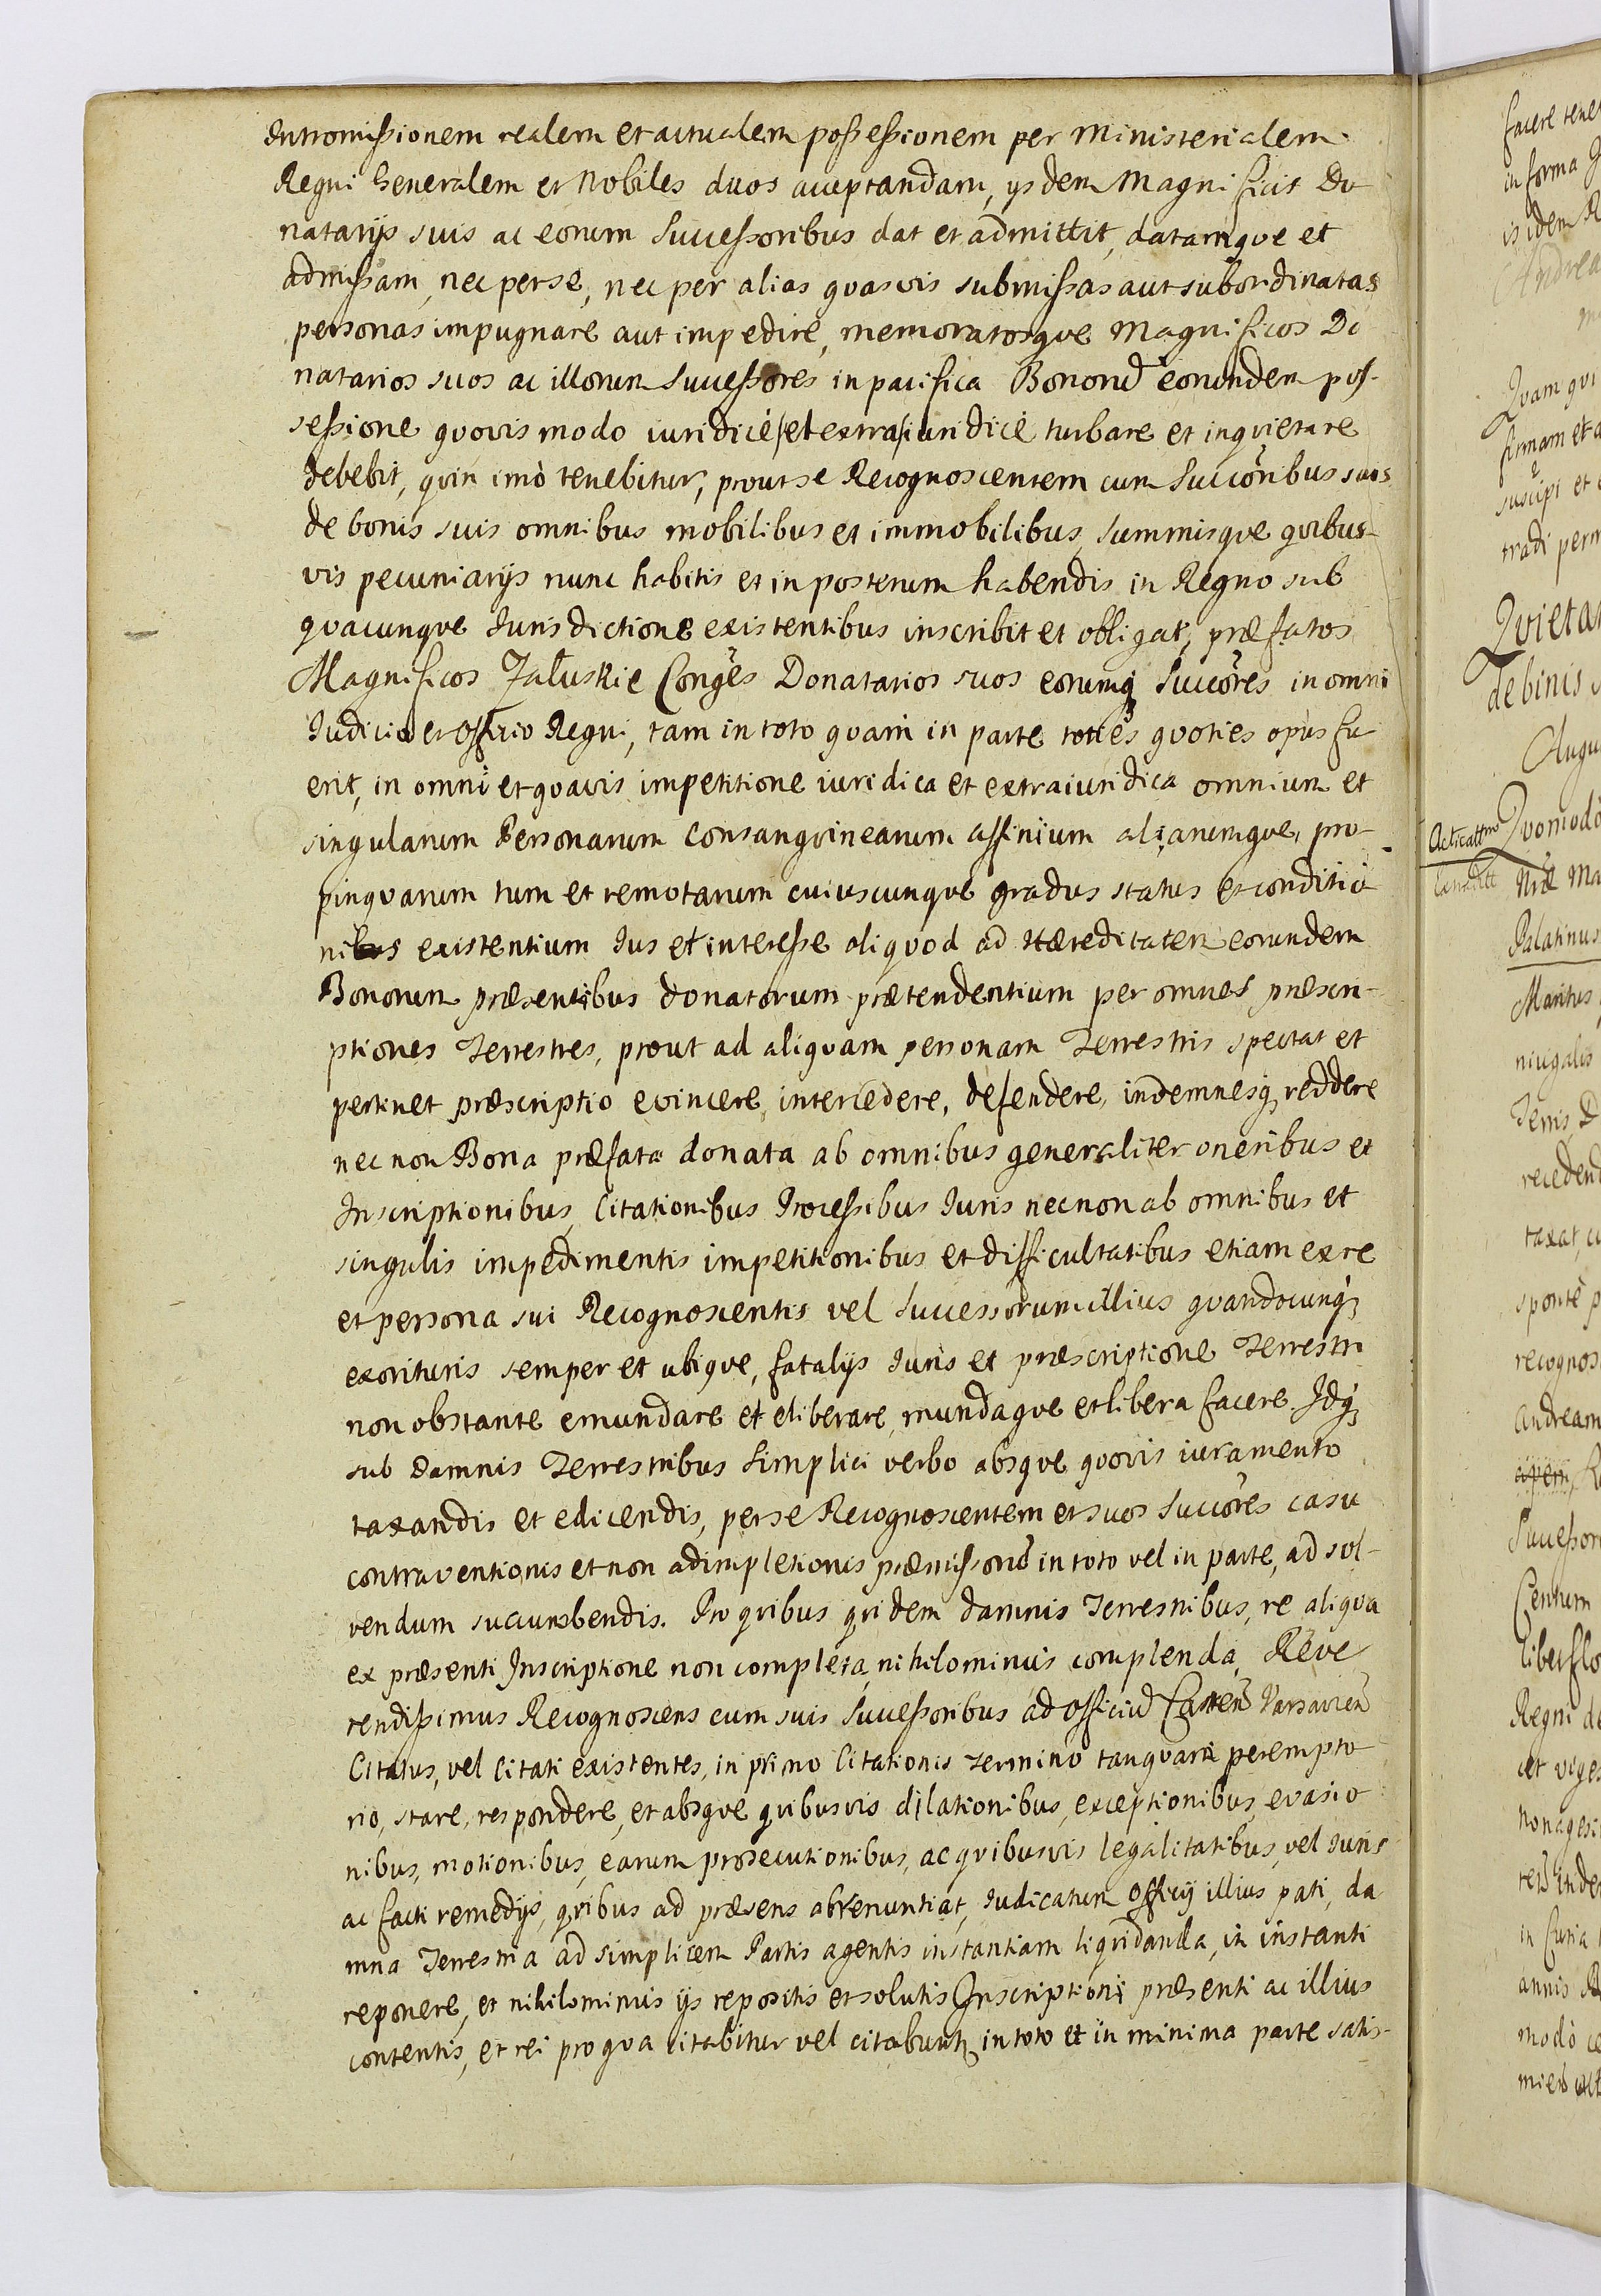 Intromissionem realem et actualem possessionem per Ministerialem
Regni Generalem et Nobiles duos acceptandam, ijsdem Magnificis Do
natarijs suis ac eorum Successoribus dat et admittit, datamque et
admissam, nec per se, nec per alias quasvis submissas aut subordinatas
personas impugnare aut impedire, memoratosque Magnificos Do
natarios suos ac illorum Successores in pacifica Bonorũ eorundem pos-
sessione quovis modo iuridicè et extraiuridicè turbare et inquietare
debebit, quin imò tenebitur, prout se Recognoscentem cum Succõribus suis
de bonis suis omnibus mobilibus et immobilibus, summisque quibus-
vis pecuniarijs nunc habitis et in posterum habendis in Regno sub
quacunque Iurisdictione existentibus inscribit et obligat, præfatos
Magnificos Załuskie Congẽs Donatarios suos eorumq; Succõres in omni
Iudicio et Officio Regni, tam in toto quam in parte toties quoties opus fu
erit, in omni et quavis impetitione iuridica et extraiuridica omnium et
singularum Personarum consanguinearum affinium aliarumque, pro-
pinquarum tum et remotarum cuiuscunque gradus status et conditio
nibus existentium Ius et interesse aliquod ad Hæreditatem eorundem
Bonorum præsentibus donatorum prætendentium per omnes præscri-
ptiones Terrestres, prout ad aliquam personam Terrestris spectat et
pertinet præscriptio evincere, intercedere, defendere, indemnesq; reddere
nec non Bona præfata donata ab omnibus generaliter oneribus et
Inscriptionibus, Citationibus Processibus Iuris nec non ab omnibus et
singulis impedimentis impetitionibus et difficultatibus etiam ex re
et persona sui Recognoscentis vel Successorum illius quandocunq;
exorituris semper et ubique, fatalijs Iuris et præscriptione Terrestri
non obstante emundare et eliberare, mundaque et libera facere. Idq;
sub damnis Terrestribus simplici verbo absque quovis iuramento
taxandis et edicendis, per se Recognoscentem et suos Succõres casu
contraventionis et non adimpletionis præmissorũ in toto vel in parte, ad sol-
vendum succumbendis. Pro quibus quidem damnis Terrestribus, re aliqua
ex præsenti Inscriptione non completa, nihilominus complenda, Reve
rendissimus Recognoscens cum suis Successoribus ad Officiũ Castreñ Varsavieñ
Citatus, vel Citati existentes, in primo Citationis Termino tanquam perempto
rio, stare, respondere, et absque quibusvis dilationibus, exceptionibus, evasio
nibus, motionibus, earum prosecutionibus, ac quibusvis legalitatibus, vel Iuris
ac facti remedijs, quibus ad præsens abrenuntiat, Iudicatum Officij illius pati, da
mna Terrestria ad simplicem Partis agentis instantiam liquidanda, in instanti
reponere, et nihilominus ijs repositis et solutis Inscriptioni præsenti ac illius
contentis, et rei pro qua citabitur vel citabunt; in toto et in minima parte satis-
facere
in forma
is idem
Andrea
Quam
firmam et
suscipi et
tradi
Quieta
de binis
Augu
Acticatt
Quomodò
Palatinus
Maritus
niugalis
recedend
taxat
sponte
recognos
Andream
Successor
Centum
Regni
et viges
Nonagesi
in Curia
annis
modò